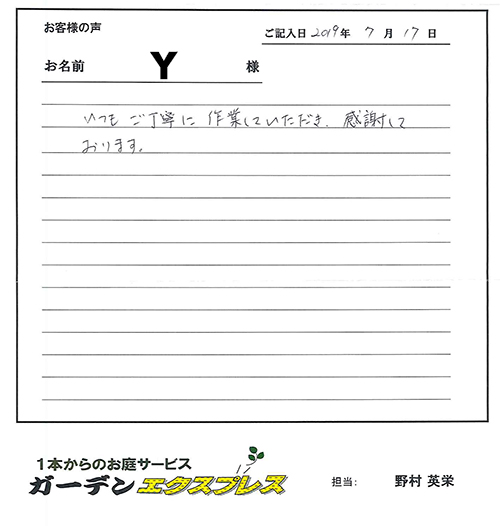 お客様の声
ご記入日 2019年 7月 17日
お名前 Y 様
いつも ご丁寧に 作業していただき、感謝して
おります。
1本からのお庭サービス
ガーデン エクスプレス
担当: 野村 英栄